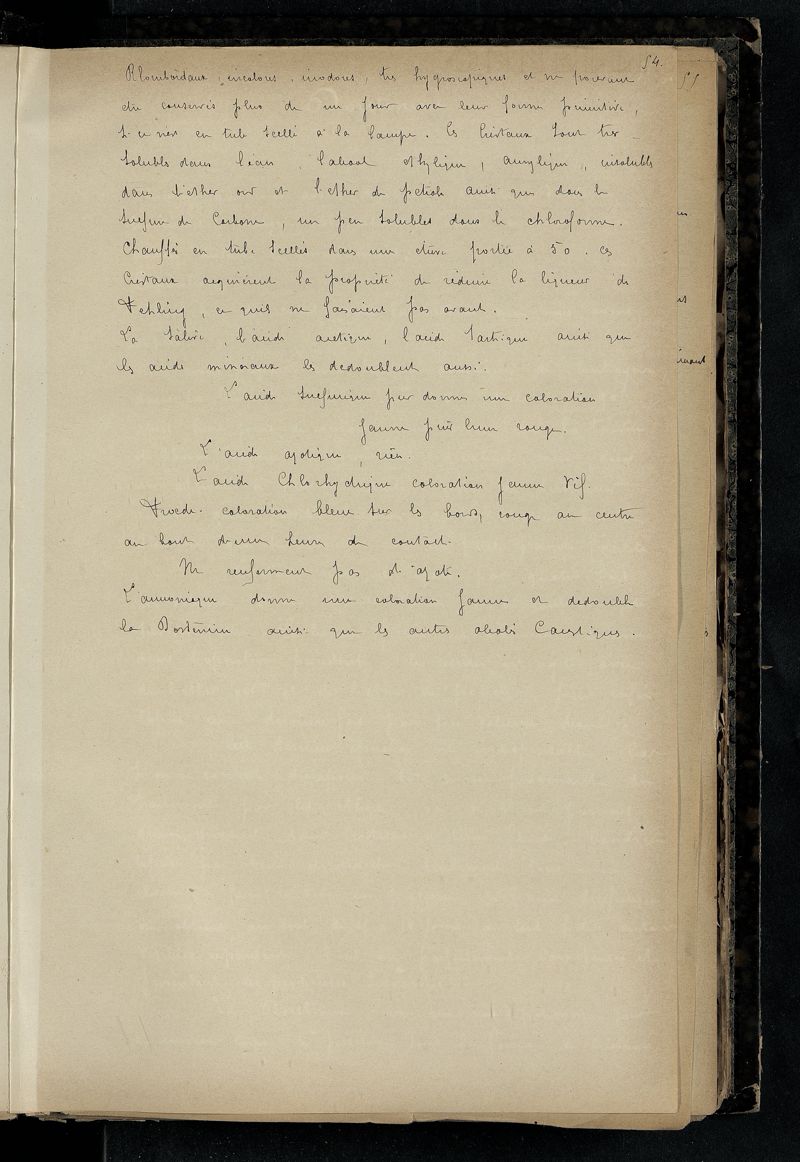 54.
Rhomboïdaux, incolores, inodores, très hygroscopiques et ne pouvant
être conservés plus de un jour avec leur forme primitive,
si ce n'est en tube scellé à la lampe. Ces cristaux sont très
solubles dans l'eau, l'alcool éthylique, amylique, insolubles
dans l'éther ord et l'éther de pétrole ainsi que dans le
sulfure de Carbone, un peu solubles dans le chloroforme.
Chauffés en tube scellés dans une étuve portée à 50. Ces
Cristaux acquièrent la propriété de réduire la liqueur de
Fehling, ce qu'ils ne faisaient pas avant.
La salive, l'acide acétique, l'acide tartrique ainsi que
les acides minéraux les dédoublent aussi.
L'acide sulfurique pur donne une coloration
jaune puis brun rouge.
L'acide azotique, rien.
L'acide Chlorhydrique coloration jaune vif.
coloration bleue sur les bords, rouge au centre
au bout d'une heure de contact.
Ne renferment pas d'azote.
L'ammoniaque donne une coloration jaune et dédouble
la ainsi que les autres alcalis Caustiques.
55